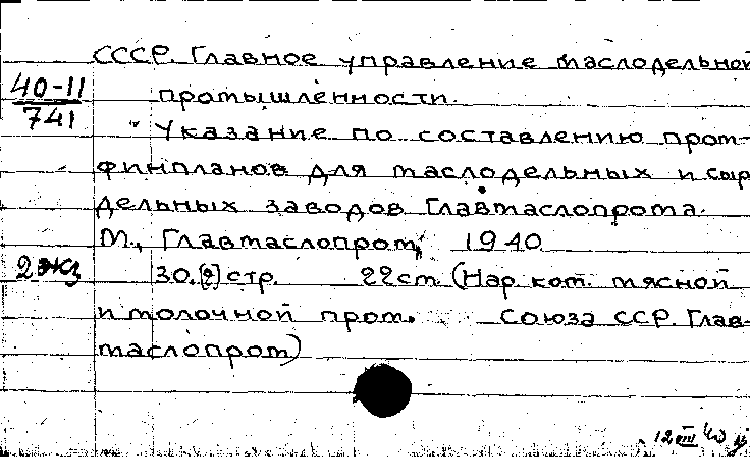 СССР. Главное управление маслодельной
40-11
741
промышленности.
Указание по составлению пром-
финпланов для маслодельных и сыр
дельных заводов Главмаслопрома.
М., Главмаслопром, 1940
2 экз
30.[2] стр. 22 см (Нар. ком. мясной
и молочной пром. Союза ССР. Глав-
маслопром)
12 III 40